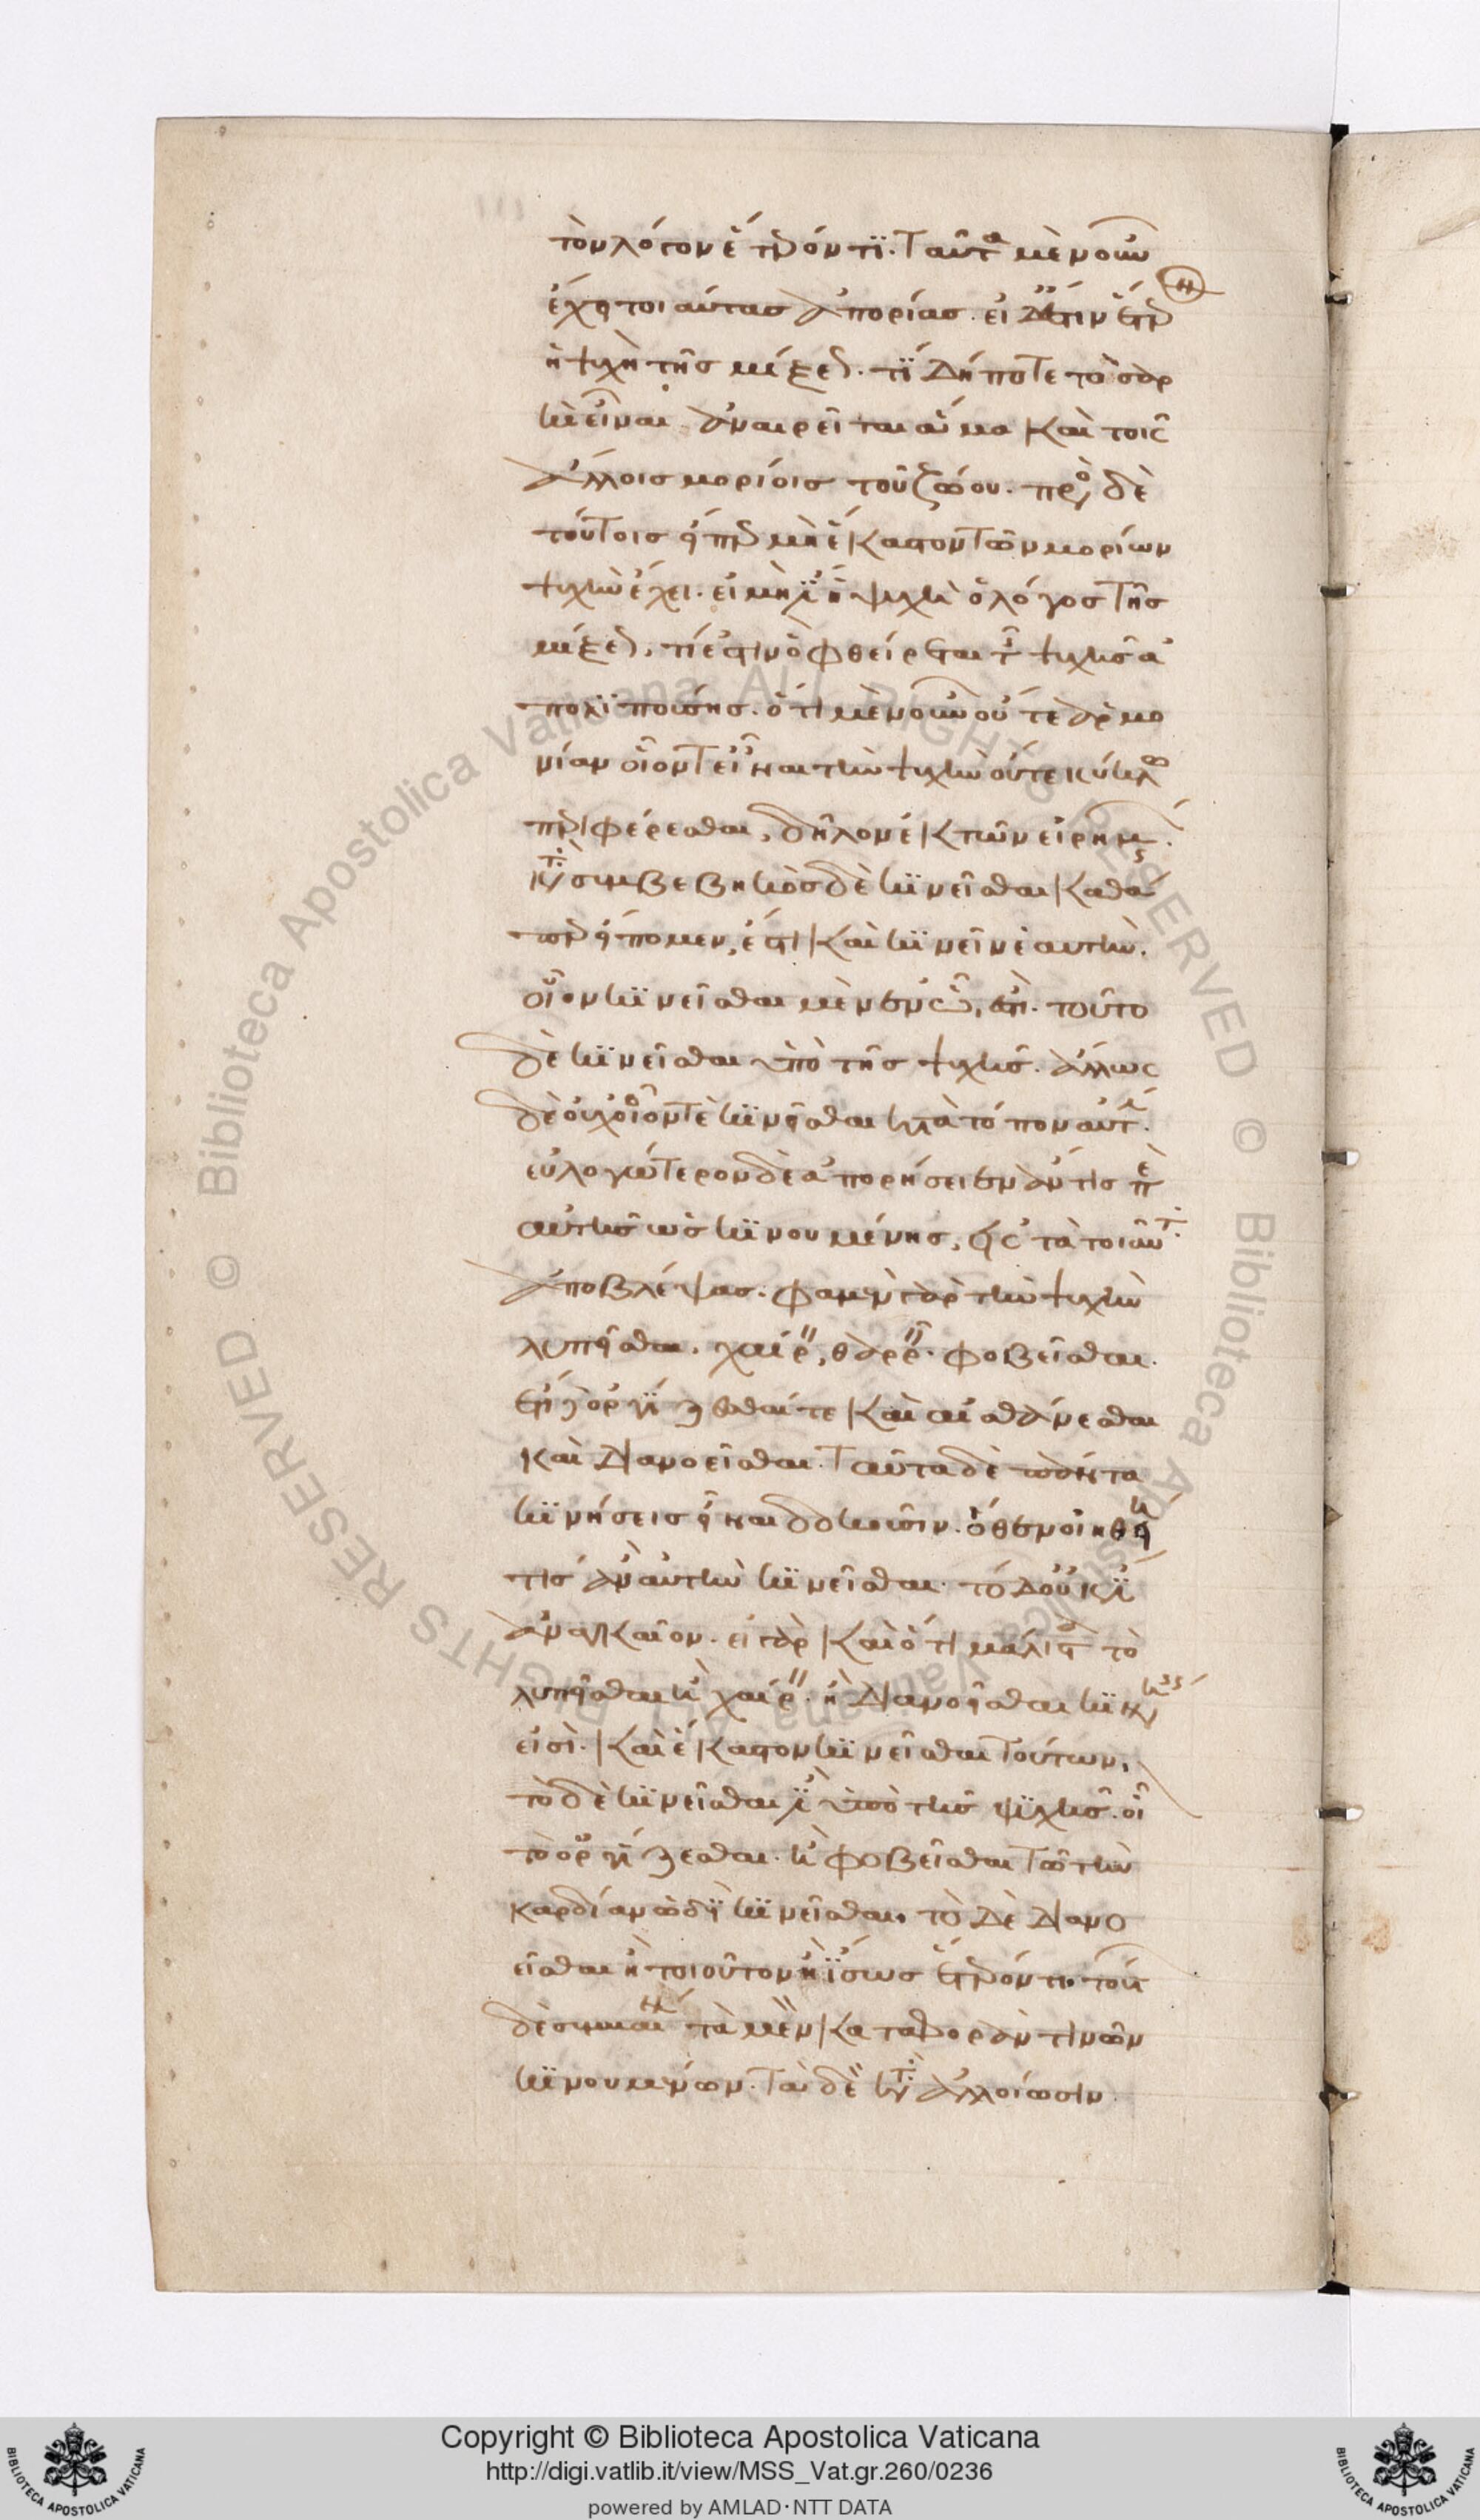 τὸν λόγον ἕτερόν τι. Ταῦτα μὲν οὖν
ἔχει τοιαύτας ἀπορίας. εἰ δ' ἔστιν ἕτερον
ἡ ψυχὴ τῆς μίξεως. τί δήποτε τὸ σαρ
κὶ εἶναι ἀναιρεῖται ἅμα καὶ τοῖς
ἄλλοις μορίοις τοῦ ζώου. πρὸς δὲ
τούτοις εἴπερ μὴ ἕκαστον τῶν μορίων
ψυχὴν ἔχει. εἰ μή ἐστιν ἡ ψυχὴ ὁ λόγος τῆς
μίξεως, τί ἐστιν ὃ φθείρεται τῆς ψυχῆς ἀ
πολιπούσης. ὅτι μὲν οὖν οὔτε ἁρμο
νίαν οἷόν τε εἶναι τὴν ψυχὴν οὔτε κύκλω
περιφέρεσθαι, δῆλον ἐκ τῶν εἰρημένων.
κατὰ συμβεβηκὸς δὲ κινεῖσθαι καθά
περ εἴπομεν, ἔστι καὶ κινεῖν ἑαυτήν.
οἷον κινεῖσθαι μὲν ἐν ᾧ, ἐστί. τοῦτο
δὲ κινεῖσθαι ὑπὸ τῆς ψυχῆς. ἄλλως
δὲ οὐχ οἷόν τε κινεῖσθαι κατὰ τόπον αὐτήν.
εὐλογώτερον δὲ ἀπορήσειεν ἄν τις περὶ
αὐτῆς ὡς κινουμένης, εἰς τὰ τοιαῦτα
ἀποβλέψας. φαμὲν γὰρ τὴν ψυχὴν
λυπεῖσθαι. χαίρειν, θαρρεῖν. φοβεῖσθαι.
ἔτι δὲ ὀργίζεσθαί τε καὶ αἰσθάνεσθαι
καὶ διανοεῖσθαι. Ταῦτα δὲ πάντα
κινήσεις εἶναι δοκοῦσιν. ὅθεν οἰηθείη
τις ἂν αὐτὴν κινεῖσθαι. τὸ δ' οὐκ ἔστιν
ἀναγκαῖον. εἰ γὰρ καὶ ὅτι μάλιστα τὸ
λυπεῖσθαι καὶ χαίρειν. ἢ διανοεῖσθαι κινήσεις
εἰσί. καὶ ἕκαστον κινεῖσθαι τούτων,
τὸ δὲ κινεῖσθαί ἐστιν ὑπὸ τῆς ψυχῆς. οἷον
τὸ ὀργίζεσθαι. καὶ φοβεῖσθαι τῶ τὴν
καρδίαν ὡδὶ κινεῖσθαι. τὸ δὲ διανο
εῖσθαι ἢ τοιοῦτον ἢ ἴσως ἕτερόν τι. τούτων
δὲ συμβαίνει τὰ μὲν κατὰ φορὰν τινῶν
κινουμένων. τὰ δὲ κατὰ ἀλλοίωσιν
Copyright © Biblioteca Apostolica Vaticana
http://digi.vatlib.it/view/MSS_Vat.gr.260/0236
powered by AMLAD·NTT DATA